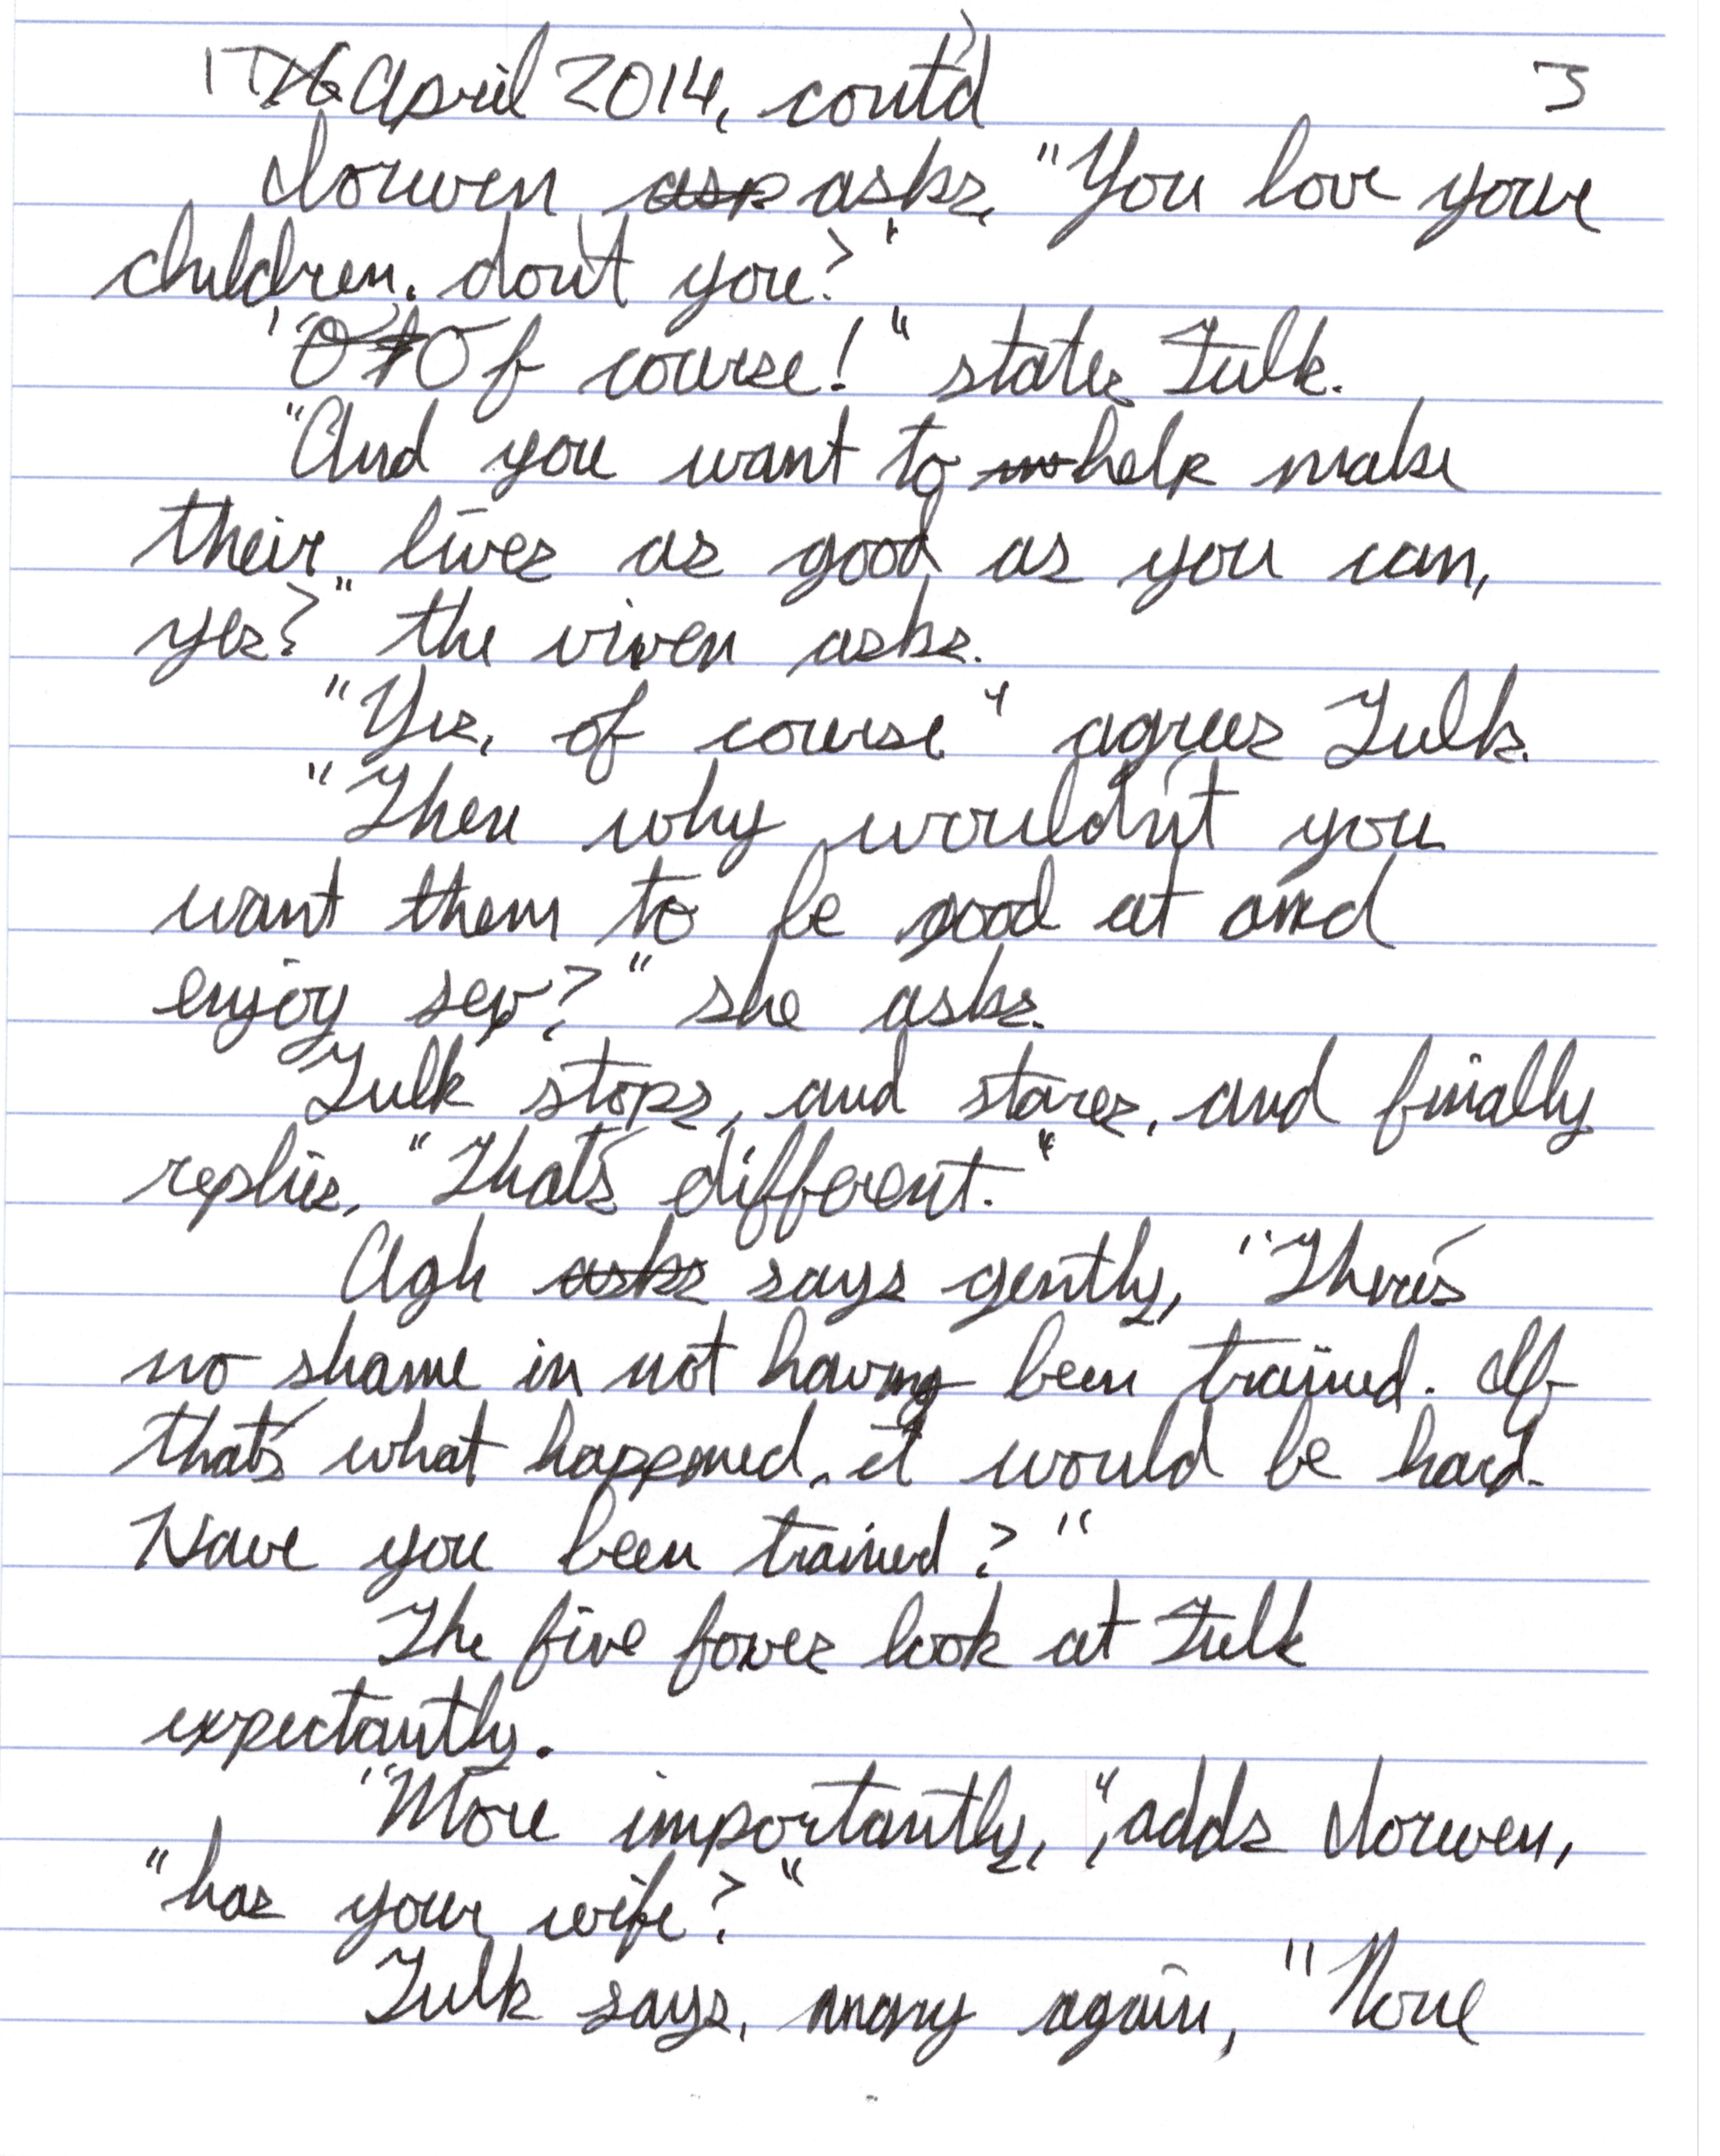 17 April 2014, cont'd 3
Iorwen asks, "You love your
children, don't you?"
"Of course!" states Tulk.
"And you want to help make
their lives as good as you can,
yes?" the vixen asks.
"Yes, of course" agrees Tulk.
"Then why wouldn't you
want them to be good at and
enjoy sex?" she asks.
Tulk stops, and stares, and finally
replies, "That's different."
Agh says gently, "There's
no shame in not having been trained. If
that's what happened, it would be hard.
Have you been trained?"
The five foxes look at Tulk
expectantly.
"More importantly,", adds Iorwen,
"has your wife?"
Tulk says, angry again, "None